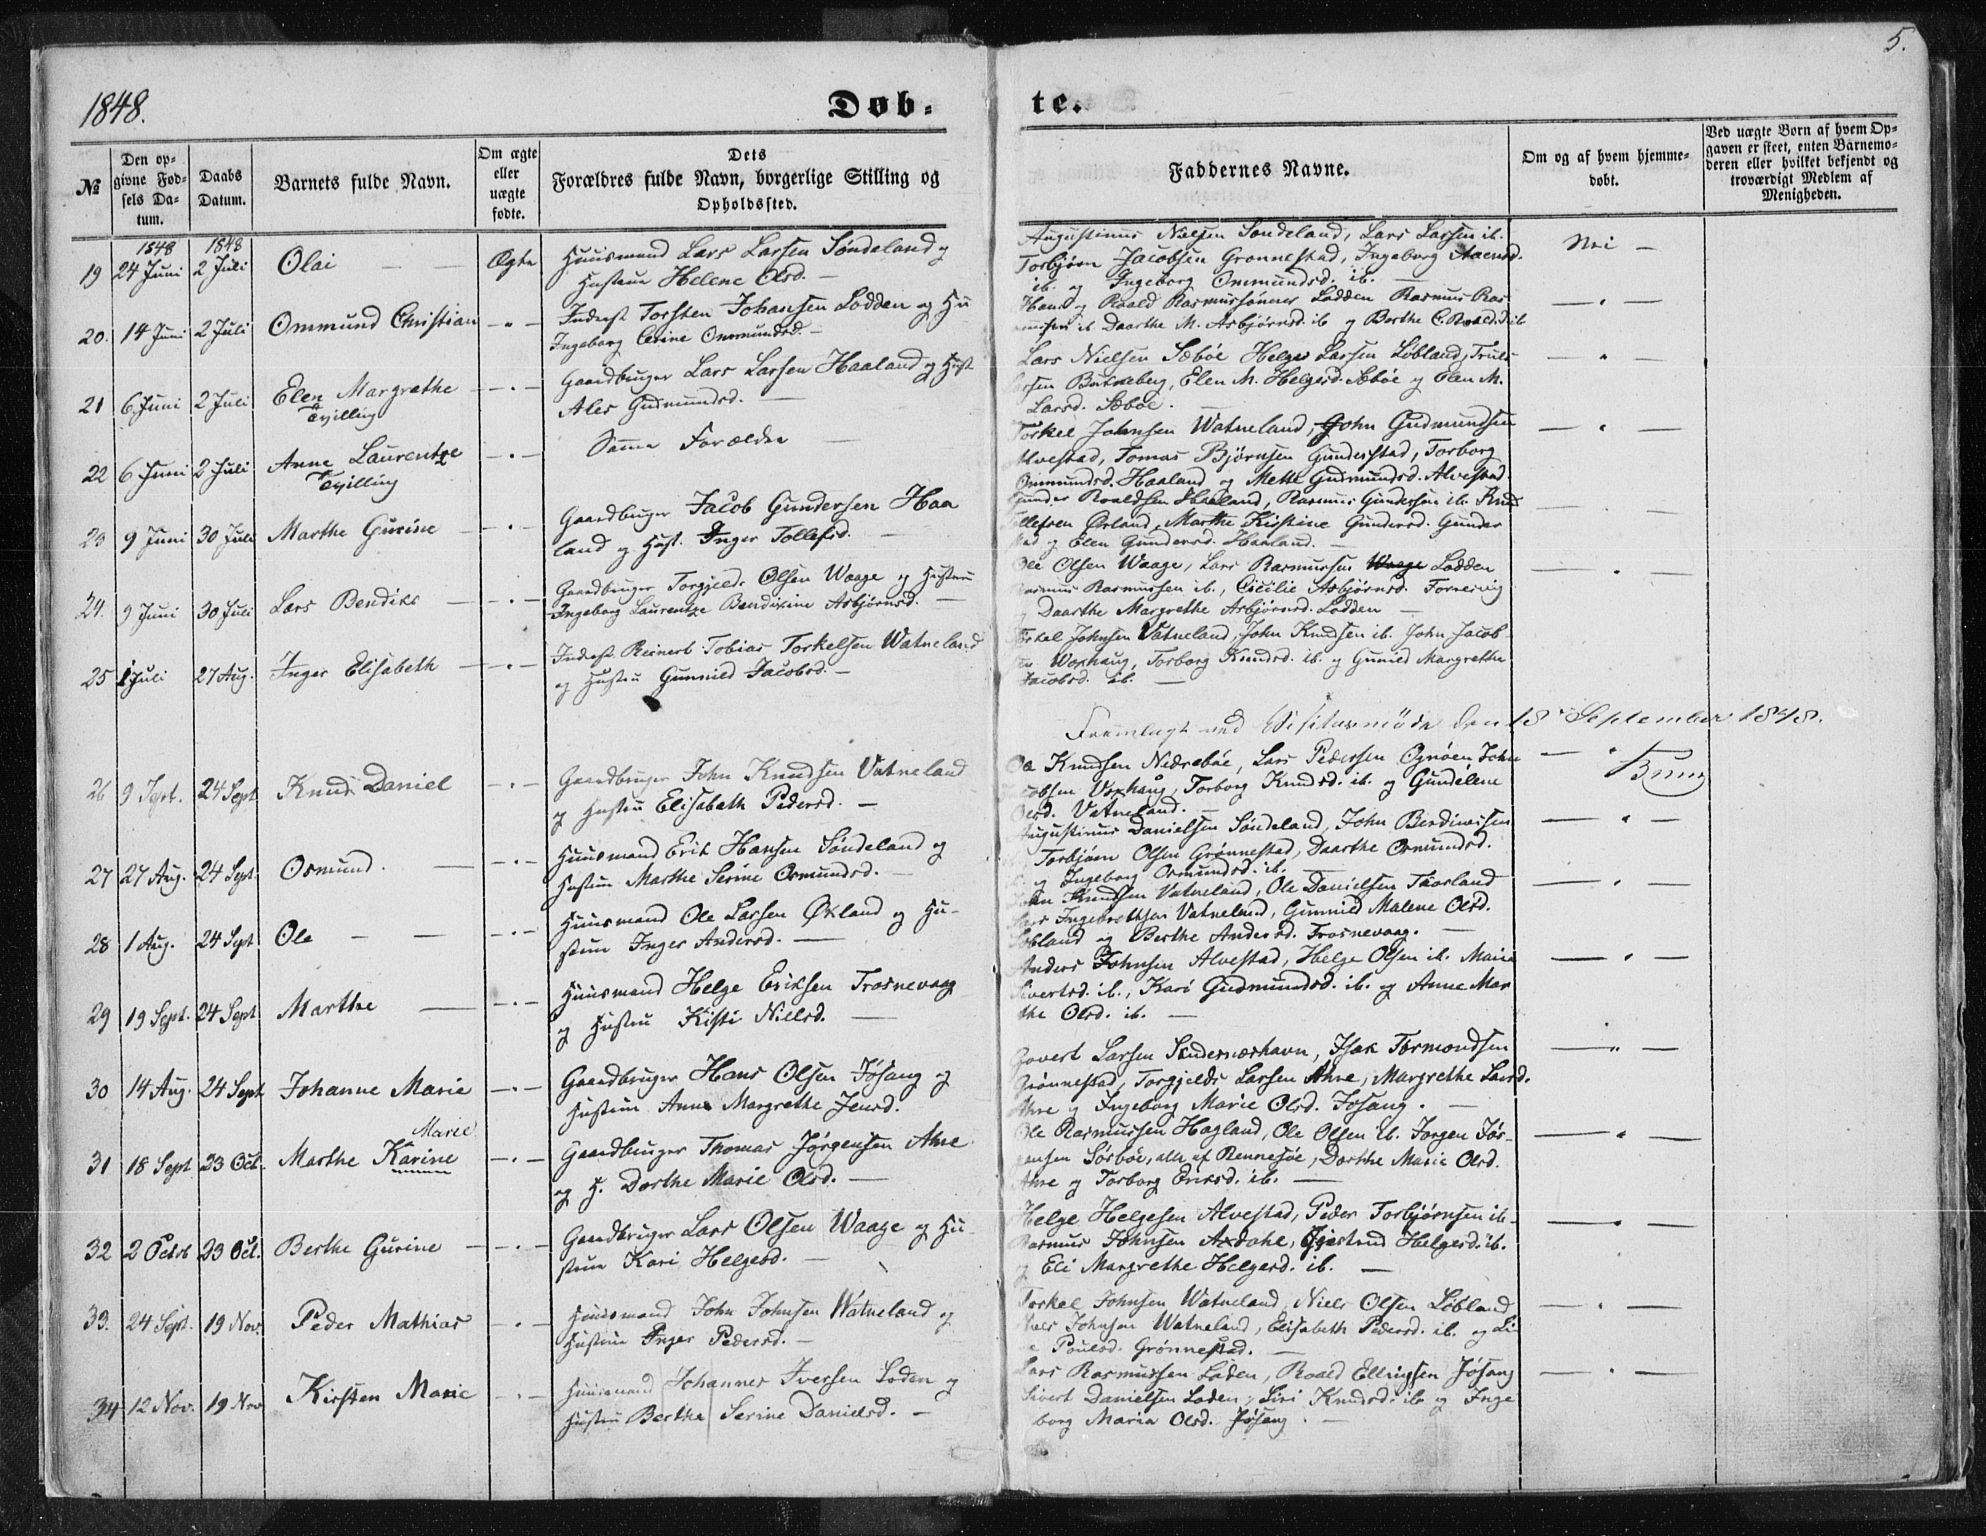 5.
1848.
Døb-
te.
№
Den op-
givne Fød-
sels Da-
tum.
Daabs
Datum.
Barnets fulde Navn.
Om ægte
eller
uægte
fødte.
Dets
Forældres fulde Navn, borgerlige Stilling og
Opholdssted.
Faddernes Navne.
Om og af hvem hjemme-
døbt.
Ved uægte Børn af hvem Op-
gaven er skeet, enten Barnemo-
deren eller hvilket bekjendt og
troværdigt Medlem af
Menigheden.
1848 1848
19 24 Juni 2 Juli Olai — — Ægte
Huusmand Lars Larsen Søndeland og
Hustrue Helene Olsd. —
Augustinus Nielsen Søndeland, Lars Larsen ib.
Torbjørn Jacobsen Grønnestad, Ingeborg
ib. og Ingeborg Ommundsd. ib. —
Nei —
20. 14 Juni 2 Juli Ommund Christian — " —
Inderst Torsten Johansen Lodden og Hu
Ingeborg Serine Ommundsd. —
Hans og Roald Rasmussønner Lodden Rasmus Ras
mussen ib Daarthe M. Asbjørnsd. ib og Berthe C. Roaldsd ib
— " —
21 6 Juni 2 Juli Elen Margrethe — " —
Tvilling
Gaardbruger Lars Larsen Haaland og Hust
Ales Gudmundsd. —
Lars Nielsen Sæbøe Helge Larsen Løbland, Truls
Elen M. Helgesd. Sæbøe og Elen M.
Larsd. Sæbøe. —
— " —
22 6 Juni 2 Juli Anne Laurentze — " —
Tvilling
Samme Forældre —
Torkel Johnsen Watneland, John Gudmundsen
Alvestad, Tomas Bjørnsen Gunderstad, Torborg
Ommundsd. Haaland og Mette Gudmundsd. Alvestad.
— " —
23 9 Juni 30 Juli Marthe Gurine — " —
Gaardbruger Jacob Gundersen Haa
land og Hust. Inger Tollefsd. —
Gunder Roaldsen Haaland, Rasmus Gundersen ib. Knud
Tollefsen Ørland, Marthe Kirstine Gundersd. Gunder
stad og Elen Gundersd. Haaland. —
— " —
24. 9 Juni 30 Juli Lars Bendiks — — " —
Gaardbruger Torgjelds Olsen Waage og Hustrue
Ingeborg Laurentze Bendixine Asbjørnsd. —
Ole Olsen Waage, Lars Rasmussen Waage Lodden
Rasmus Rasmussen ib., Cicilie Asbjørnsd.
og Daarthe Margrethe Asbjørnsd. Lodden —
— " —
25 1 Juli 27 Aug. Inger Elisabeth — " —
Inderst Reinert Tobias Torkelsen Watneland
og Hustru Gunnild Jacobsd. —
Torkel Johnsen Vatneland, John Knudsen ib. John Jacob
sen Woxhaug, Torborg Knudsd. ib. og Gunild Margrethe
Jacobsd. ib. —
Fremlagt ved Visitasmøde den 18 September 1848.
Brun
26 9 Sept. 24 Sept Knud Daniel — " —
Gaardbruger John Knudsen Vatneland
og Hustru Elisabeth Pedersd. —
Ole Knudsen Nedrebøe, Lars Pedersen Ognøen John
Jacobsen Voxhaug, Torborg Knudsd. ib. og Gundelene
Olsd. Vatneland. —
— "
27 27 Aug. 24 Sept. Osmund. — — " —
Huusmand Erik Hansen Søndeland og
Hustrue Marthe Serine Osmundsd. —
Augustinus Danielsen Søndeland, John Bendixsen
Torbjørn Olsen Grønnestad, Daarthe Osmundsd.
og Ingeborg Osmundsd. ib. —
— " —
28 1 Aug. 24 Sept Ole — — — " —
Huusmand Ole Larsen Økland og Hu-
strue Inger Andersd. —
John Knudsen Vatneland, Ole Danielsen
Lars Ingebrethsen Vatneland, Gunnild Malene Olsd.
Løbland og Berthe Andersd. Trosnevaag. —
— " —
29 19 Sept. 24 Sept Marthe — — " —
Huusmand Helge Eriksen Trosnevaag
og Hustru Kisti Nielsd. —
Anders Johnsen Alvestad, Helge Olsen ib. Marie
Sivertsd. ib., Kari Gudmundsd. ib. og Anne Mar
the Olsd. ib. —
— " —
30 14 Aug. 24 Sept Johanne Marie — " —
Gaardbruger Hans Olsen Jøsang og
Hustrue Anne Margrethe Jensd.
Govert Larsen Skudernæshavn, Isak Tormondsen
Grønnestad, Torgjelds Larsen Ahre, Margrethe Larsd.
Ahre og Ingeborg Marie Olsd. Jøsang. —
— " —
Marie
31 18 Sept 23 Oct. Marthe Karine — " —
Gaardbruger Thomas Jørgensen Ahre
og H. Dorthe Marie Olsd. —
Ole Rasmussen Hagland, Ole Olsen ib. Jørgen Jør-
gensen Sørbøe, alle af Rennesøe, Dorthe Marie Olsd.
Ahre og Torborg Eriksd. ib. —
— " —
32 2 Octbr 23 Oct. Berthe Gurine — " —
Gaardbruger Lars Olsen Waage og Hu-
strue Kari Helgesd. —
Helge Helgesen Alvestad, Peder Torbjørnsen ib.
Rasmus Johnsen Axdahl, Gjertrud Helgesd. ib.
og Eli Margrethe Helgesd. ib. —
— " —
33. 24 Sept. 19 Nov. Peder Mathias — " —
Huusmand John Johnsen Watneland og
Hustrue Inger Pedersd. —
Torkel Johnsen Watneland, Niels Olsen Løbland
Niels Johnsen Watneland, Elisabeth Pedersd. ib. og
Poulsd. Grønnestad. —
— " —
34 12 Nov. 19 Nov Kirsten Marie — " —
Huusmand Johannes Iversen Loden og
Hustru Berthe Serine Danielsd. —
Lars Rasmussen Loden, Roald Ellingsen Jøsang
Sivert Danielsen Loden, Siri Knudsd. ib og Inge
borg Maria Olsd. Jøsang. —
— " —